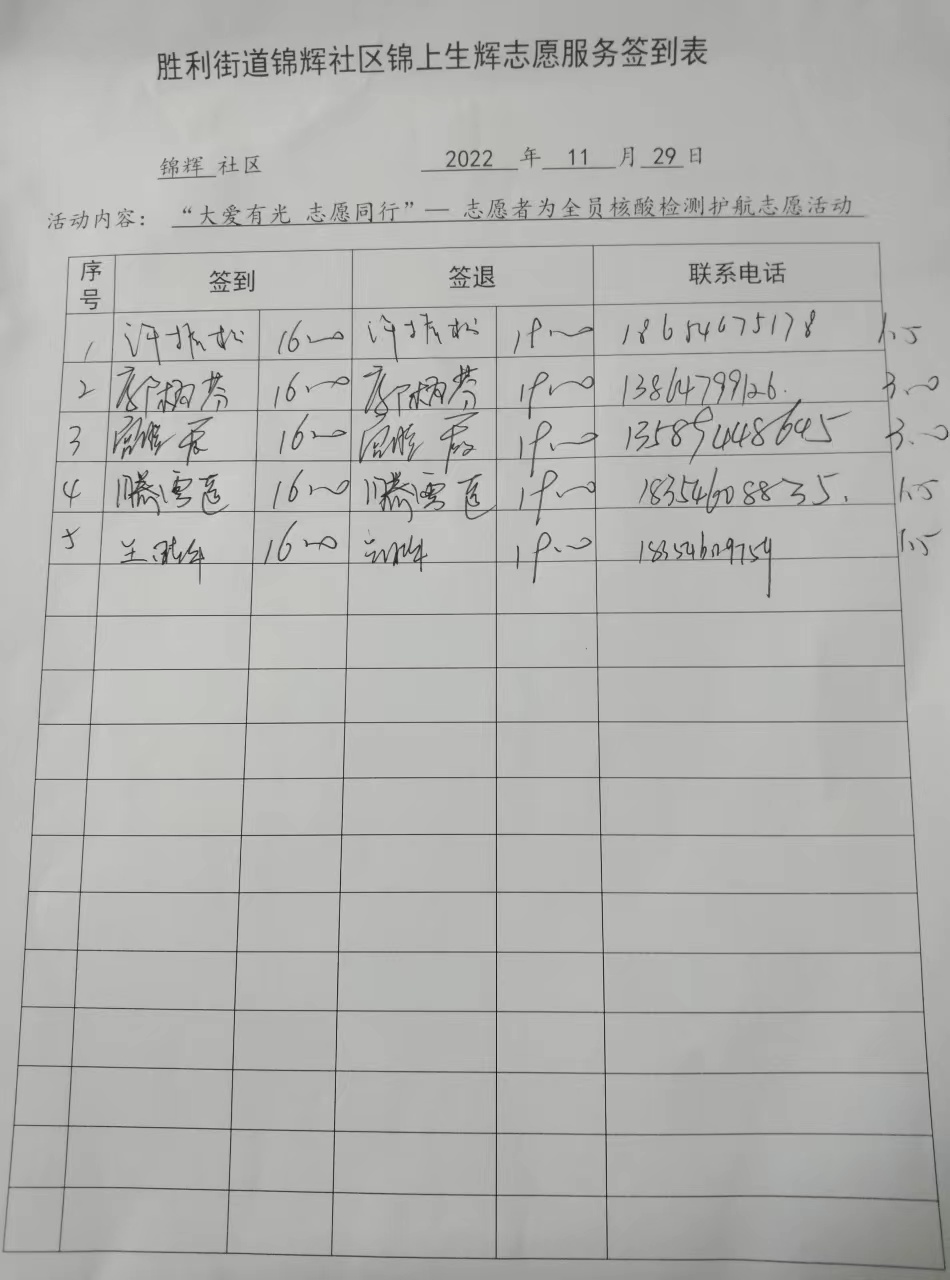 胜利街道锦辉社区锦上生辉志愿服务签到表
锦辉 社区 2022 年 11 月 29 日
活动内容： “大爱有光 志愿同行”— 志愿者为全员核酸检测护航志愿活动
序号 签到 签退 联系电话
1 许振松 16:00 许振松 19:00 18654675178 1.5
2 16:00 19:00 3.00
3 16:00 19:00 13589448645 3.00
4 滕雪 16:00 滕雪 19:00 18354608835. 1.5
5 16:00 19:00 1.5